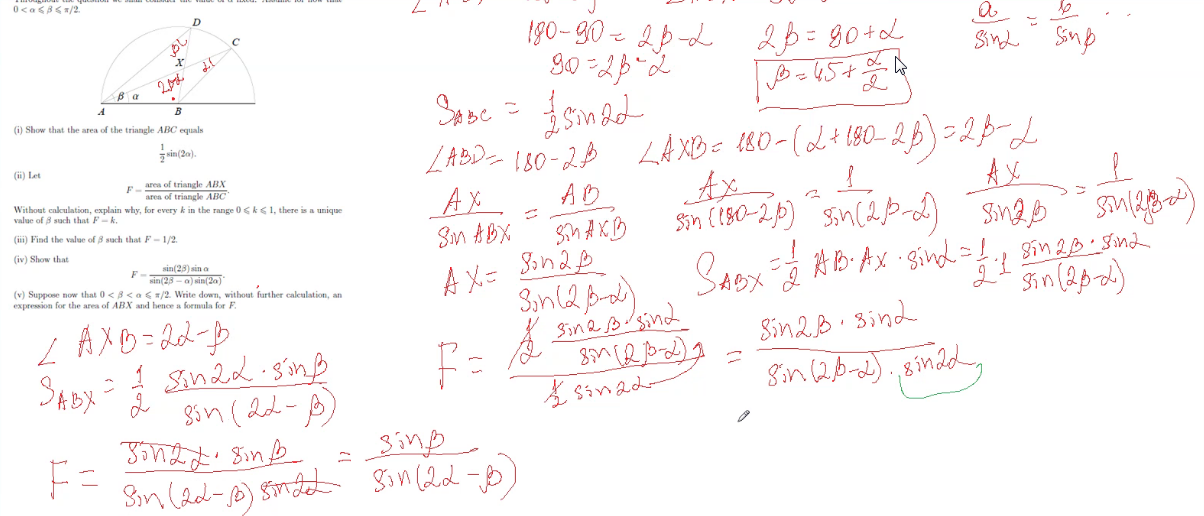 0 < α ⩽ β ⩽ π/2.
D
C
X
A
B
β α
(i) Show that the area of the triangle ABC equals
1/2 sin(2α).
(ii) Let
F = area of triangle ABX / area of triangle ABC.
Without calculation, explain why, for every k in the range 0 ⩽ k ⩽ 1, there is a unique
value of β such that F = k.
(iii) Find the value of β such that F = 1/2.
(iv) Show that
F = sin(2β) sin α / sin(2β − α) sin(2α).
(v) Suppose now that 0 < β < α ⩽ π/2. Write down, without further calculation, an
expression for the area of ABX and hence a formula for F.
180 - 90 = 2β - α
90 = 2β - α
2β = 90 + α
β = 45 + α/2
a/sinα = b/sinβ ..
S_ABC = 1/2 sin2α
∠ABD = 180 - 2β
∠AXB = 180 - (α + 180 - 2β) = 2β - α
AX/sin ABX = AB/sin AXB
AX/sin(180 - 2β) = 1/sin(2β - α)
AX/sin2β = 1/sin(2β - α)
AX = sin2β/sin(2β - α)
S_ABX = 1/2 AB · AX · sinα = 1/2 · 1 sin2β · sinα/sin(2β - α)
F = 1/2 sin2β · sinα/sin(2β - α) / 1/2 sin2α = sin2β · sinα/sin(2β - α) · sin2α
∠ AXB = 2α - β
S_ABX = 1/2 sin2α · sinβ/sin(2α - β)
F = sin2α · sinβ/sin(2α - β) sin2α = sinβ/sin(2α - β)